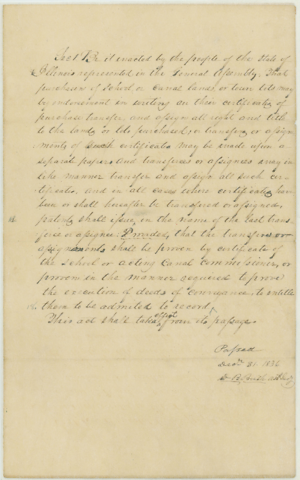 Sect 1 Be it enacted by the people of the State of
Illinois represented in the General Assembly. That
purchasers of School or Canal lands or town lots may
by indorsement in writing on their certificates of
purchase transfer, and assign all right and title
to the lands or lots purchased, or transfers or assign
ments of such certificates may be made upon a
separate paper, and transferees or assignees may in
like manner transfer and assign all such cer
tificates, and in all cases where certificates have
been or shall hereafter be transferred or assigned
patents shall issue in the name of the last trans
feree or assignee Provided, that the transfers or
assignments shall be proven by certificate of
the School or acting Canal commissioner, or
proven in the manner required to prove
the execution of deeds of conveyance to entitle
them to be admitted to record.
This act shall take effect from its passage.
Passed
Decr 21 1836